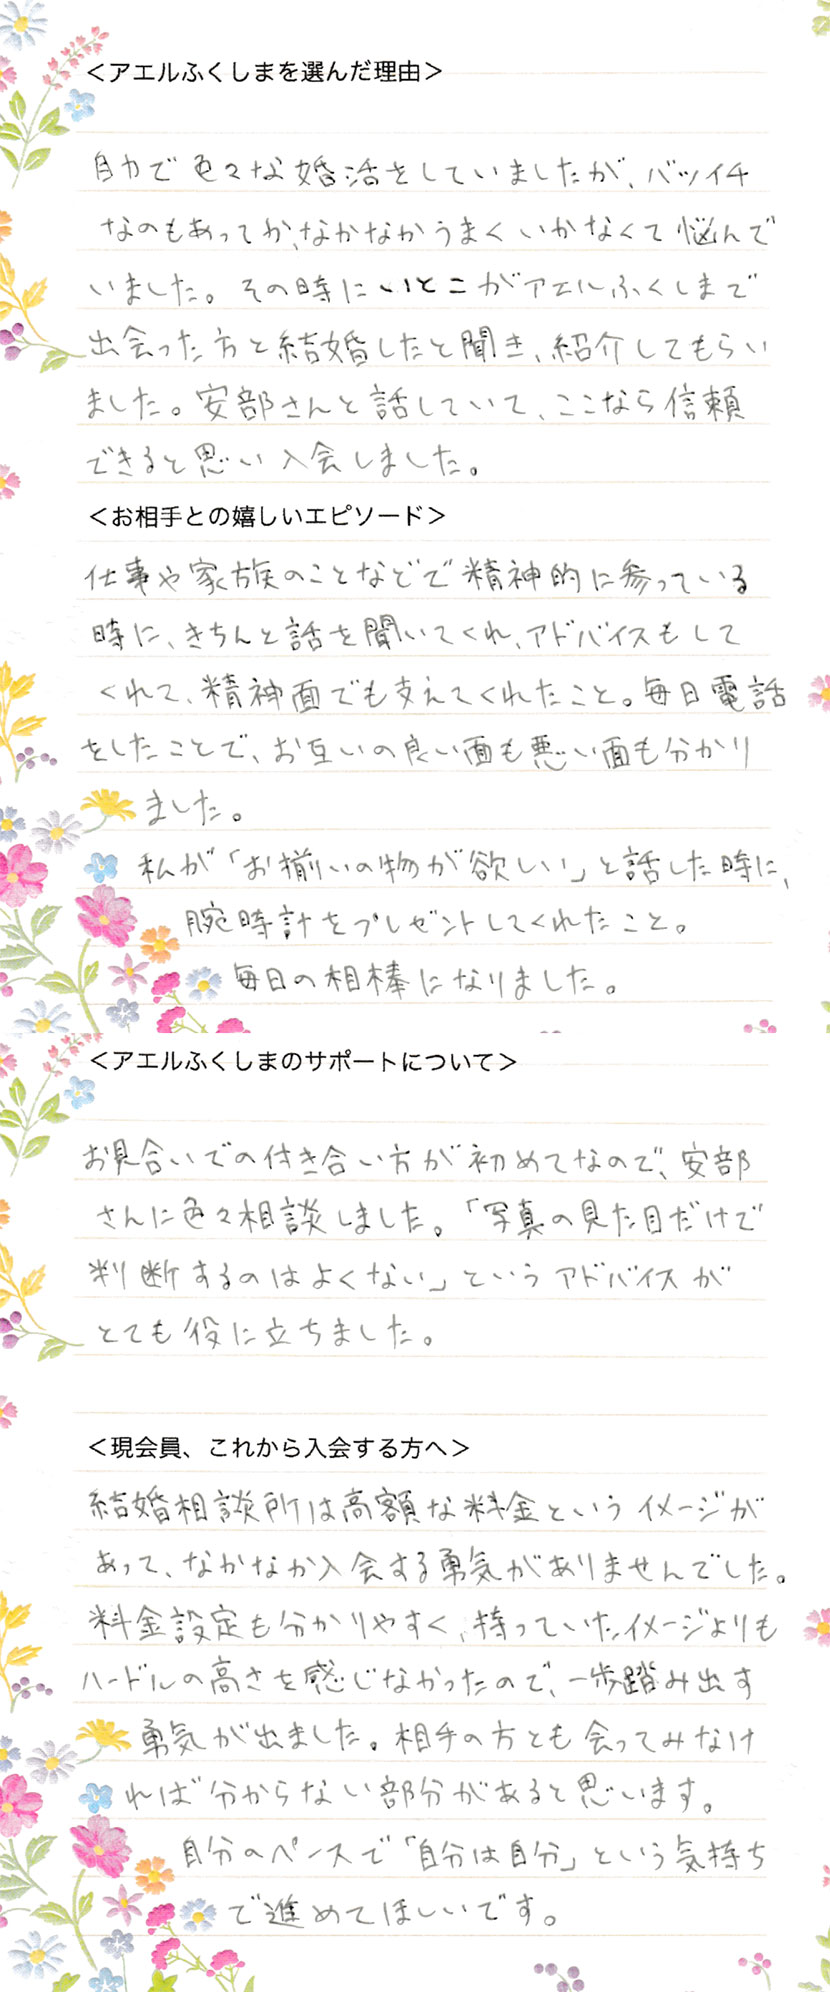 ＜アエルふくしまを選んだ理由＞
自力で色々な婚活をしていましたが、バツイチ
なのもあってか、なかなかうまくいかなくて悩んで
いました。その時にいとこがアエルふくしまで
出会った方と結婚したと聞き、紹介してもらい
ました。安部さんと話していて、ここなら信頼
できると思い入会しました。
＜お相手との嬉しいエピソード＞
仕事や家族のことなどで精神的に参っている
時に、きちんと話を聞いてくれ、アドバイスもして
くれて、精神面でも支えてくれたこと。毎日電話
をしたことで、お互いの良い面も悪い面も分かり
ました。
私が「お揃いの物が欲しい」と話した時に、
腕時計をプレゼントしてくれたこと。
毎日の相棒になりました。
＜アエルふくしまのサポートについて＞
お見合いでの付き合い方が初めてなので、安部
さんに色々相談しました。「写真の見た目だけで
判断するのはよくない」というアドバイスが
とても役に立ちました。
＜現会員、これから入会する方へ＞
結婚相談所は高額な料金というイメージが
あって、なかなか入会する勇気がありませんでした。
料金設定も分かりやすく、持っていたイメージよりも
ハードルの高さを感じなかったので、一歩踏み出す
勇気が出ました。相手の方とも会ってみなけ
れば分からない部分があると思います。
自分のペースで「自分は自分」という気持ち
で進めてほしいです。